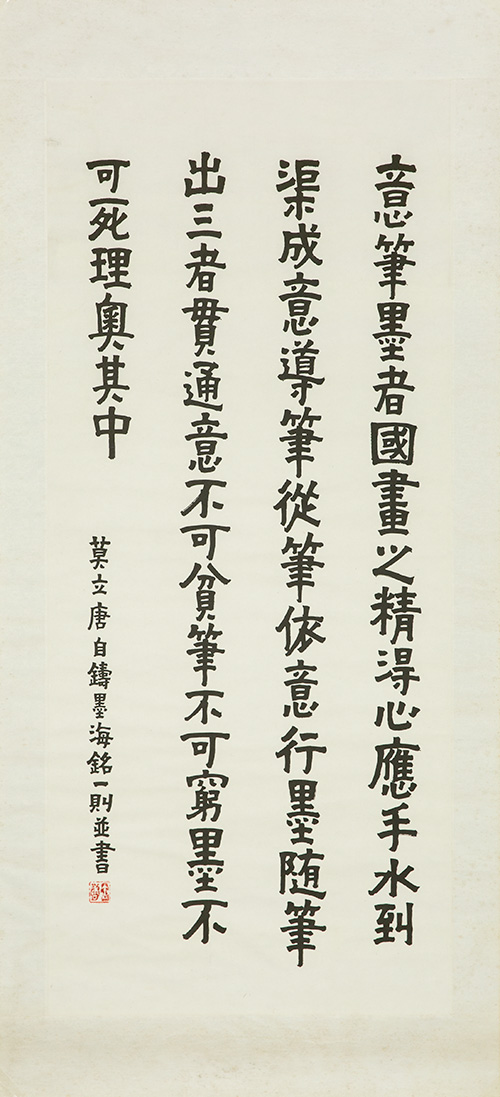 意筆墨者國畫之精淂心應手水到
渠成意導筆從筆依意行墨随筆
出三者貫通意不可貧筆不可窮墨不
可死理奧其中
莫立唐自鑄墨海銘一則並書